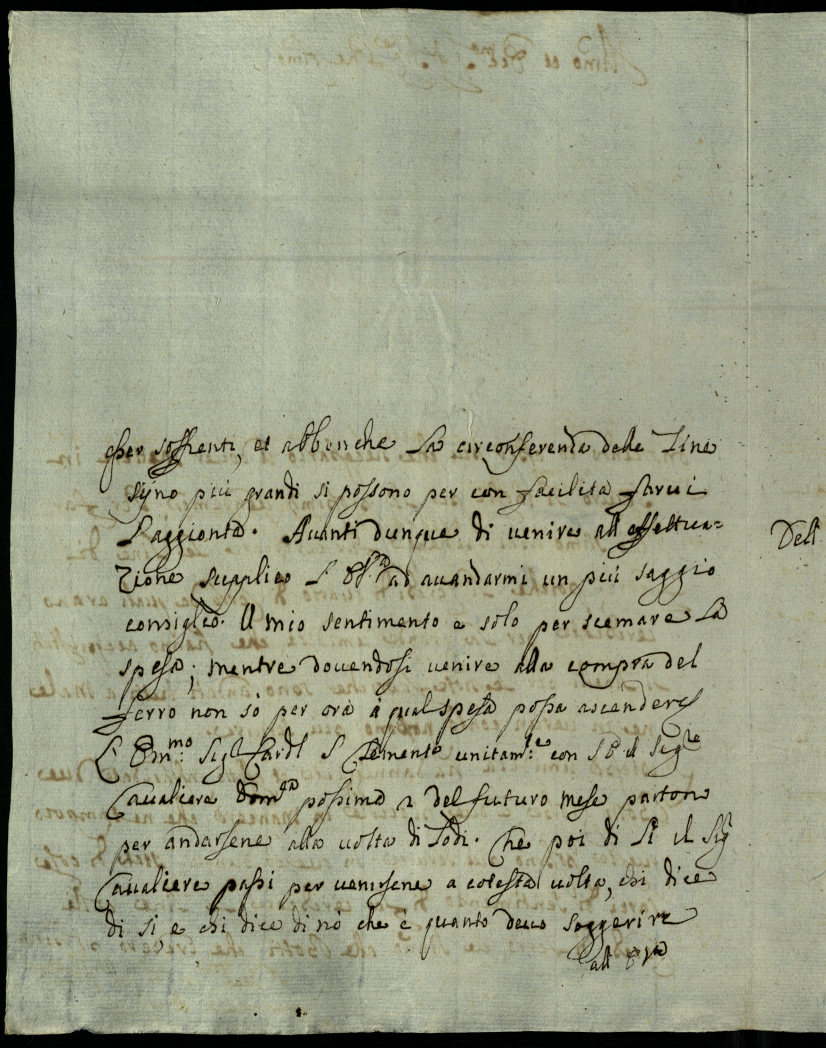 esser sofferenti, et abbenche la circonferenza delle Tine
sijno più grandi si possono per con facilità farui
l'aggionta. Auanti dunque di uenire all effettua=
zione supplico l' ad auandarmi un più saggio
consiglio. Il mio sentimento e solo per scemare la
spesa; mentre douendosi uenire alla compra del
ferro non sò per ora à qual spesa possa ascendere
L' Em:mo Sig.r Card.l unitam.te con il Sig.re
Caualiere Dom.ca possima 2 del futuro mese parton
per andarsene alla uolta di Lodi. Che poi di lì il Sig.r
Caualiere passi per uenirsene a cotesta uolta, chi dice
di si, e chi dice di nò che è quanto deuo soggerire
all
Dell